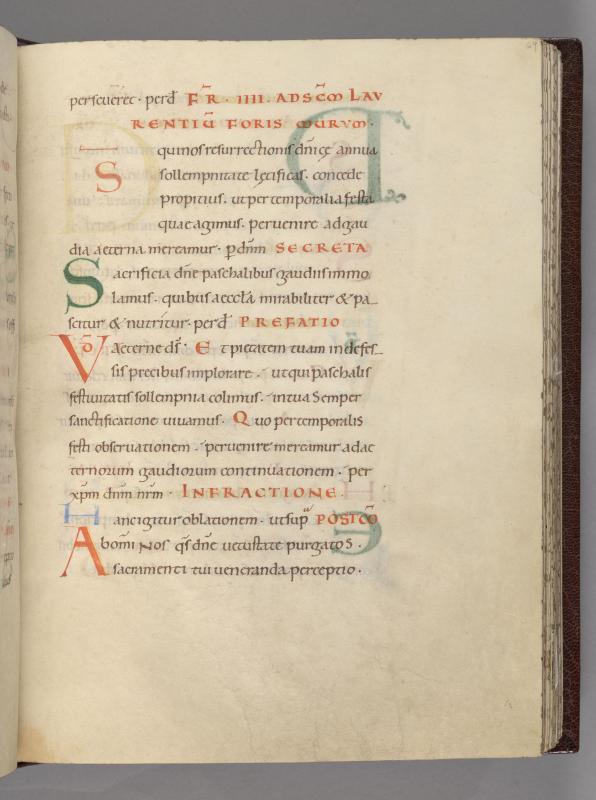 perseveret · perd̄ FR̄ · IIII · AD SC̄M LAV
RENTIŪ FORIS MURUM ·
S quinos resurrectionis dn̄icę annua
sollempnitate lętificas · concede
propitius · ut per temporalia festa
quae agimus · pervenire ad gau
dia aeterna mereamur · p̄ dn̄m SECRETA
Sacrificia dn̄e paschalibus gaudiis immo
lamus · quibus aeccl̄a mirabiliter & pa_
scitur & nutritur · perd̄ PREFATIO
VD̄ Aeterne ds̄ · Et pietatem tuam indefes_
sis precibus implorare · ut qui paschalis
festivitatis sollempnia colimus · in tua Semper
sanctificatione vivamus · Quo per temporalis
festi observationem · pervenire mereamur ad ae
ternorum gaudiorum continuationem · per
xp̄m dn̄m nr̄m · INFRACTIONE ·
Hanc igitur oblationem · ut sup̄ POSTCŌ
Ab omi Nos qs̄ dn̄e vetustate purgatoS ·
sacramenti tui veneranda perceptio ·